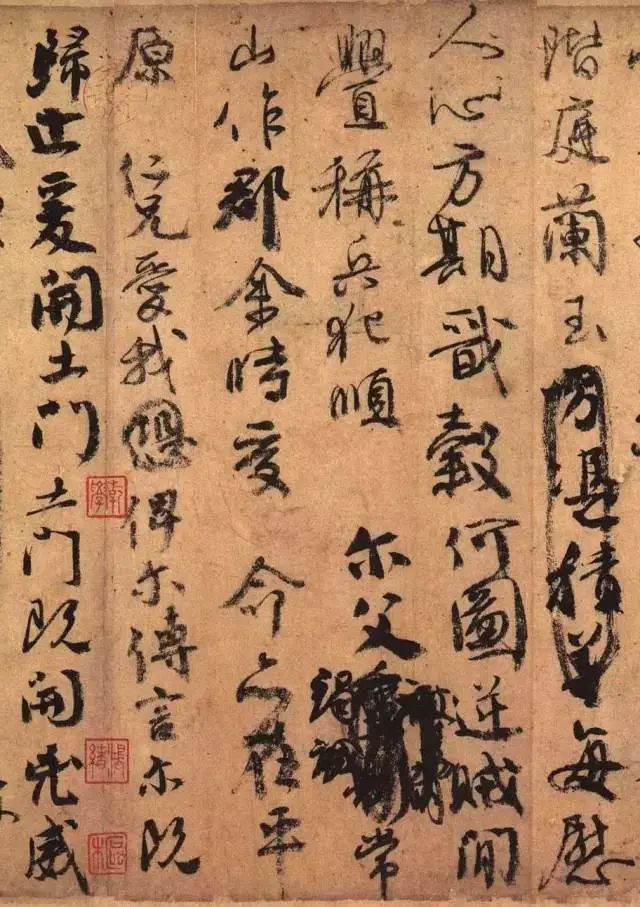 階庭蘭玉方憑積善每慰
人心方期戩穀何圖逆賊間
釁稱兵犯順 尒父竭誠常
山作郡余時受 命亦在平
原 仁兄愛我恐俾尒傳言尒既
歸止爰開土門土門既開凶威
乾學